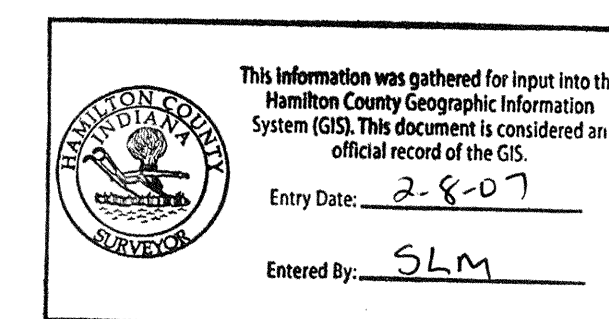 HAMILTON COUNTY
INDIANA
SURVEYOR
This information was gathered for input into th
Hamilton County Geographic Information
System (GIS). This document is considered an
official record of the GIS.
Entry Date: 2-8-07
Entered By: SLM